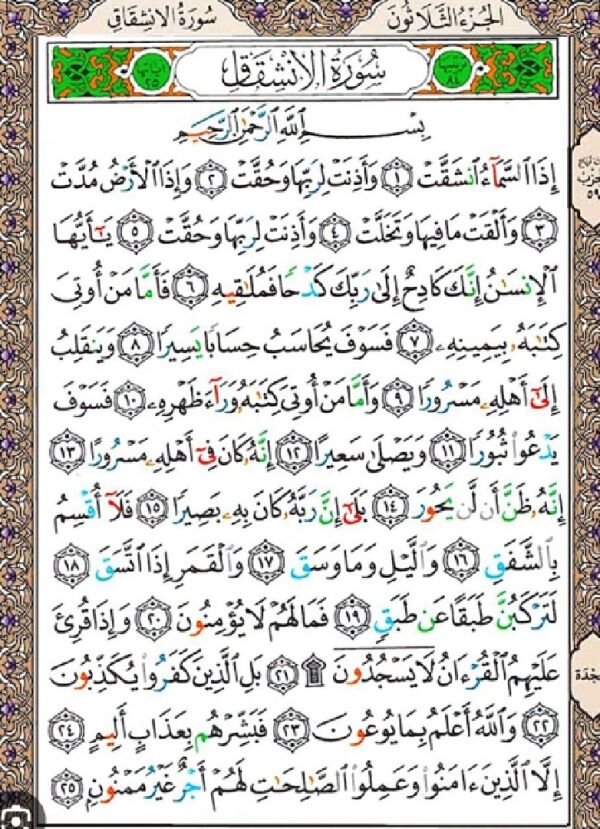 سُورَةُ الانشِقَاقِ
الجُزْءُ الثَّلَاثُونَ
سُورَةُ الِانْشِقَاقِ
آياتها ٢٥
ترتيبها ٨٤
بِسْمِ ٱللَّهِ ٱلرَّحْمَٰنِ ٱلرَّحِيمِ
إِذَا ٱلسَّمَآءُ ٱنشَقَّتْ ١ وَأَذِنَتْ لِرَبِّهَا وَحُقَّتْ ٢ وَإِذَا ٱلْأَرْضُ مُدَّتْ
٣ وَأَلْقَتْ مَا فِيهَا وَتَخَلَّتْ ٤ وَأَذِنَتْ لِرَبِّهَا وَحُقَّتْ ٥ يَٰٓأَيُّهَا
ٱلْإِنسَٰنُ إِنَّكَ كَادِحٌ إِلَىٰ رَبِّكَ كَدْحًا فَمُلَٰقِيهِ ٦ فَأَمَّا مَنْ أُوتِىَ
كِتَٰبَهُۥ بِيَمِينِهِۦ ٧ فَسَوْفَ يُحَاسَبُ حِسَابًا يَسِيرًا ٨ وَيَنقَلِبُ
إِلَىٰٓ أَهْلِهِۦ مَسْرُورًا ٩ وَأَمَّا مَنْ أُوتِىَ كِتَٰبَهُۥ وَرَآءَ ظَهْرِهِۦ ١٠ فَسَوْفَ
يَدْعُوا۟ ثُبُورًا ١١ وَيَصْلَىٰ سَعِيرًا ١٢ إِنَّهُۥ كَانَ فِىٓ أَهْلِهِۦ مَسْرُورًا ١٣
إِنَّهُۥ ظَنَّ أَن لَّن يَحُورَ ١٤ بَلَىٰٓ إِنَّ رَبَّهُۥ كَانَ بِهِۦ بَصِيرًا ١٥ فَلَآ أُقْسِمُ
بِٱلشَّفَقِ ١٦ وَٱلَّيْلِ وَمَا وَسَقَ ١٧ وَٱلْقَمَرِ إِذَا ٱتَّسَقَ ١٨
لَتَرْكَبُنَّ طَبَقًا عَن طَبَقٍ ١٩ فَمَا لَهُمْ لَا يُؤْمِنُونَ ٢٠ وَإِذَا قُرِئَ
عَلَيْهِمُ ٱلْقُرْءَانُ لَا يَسْجُدُونَ ۩ ٢١ بَلِ ٱلَّذِينَ كَفَرُوا۟ يُكَذِّبُونَ
٢٢ وَٱللَّهُ أَعْلَمُ بِمَا يُوعُونَ ٢٣ فَبَشِّرْهُم بِعَذَابٍ أَلِيمٍ ٢٤
إِلَّا ٱلَّذِينَ ءَامَنُوا۟ وَعَمِلُوا۟ ٱلصَّٰلِحَٰتِ لَهُمْ أَجْرٌ غَيْرُ مَمْنُونٍۭ ٢٥